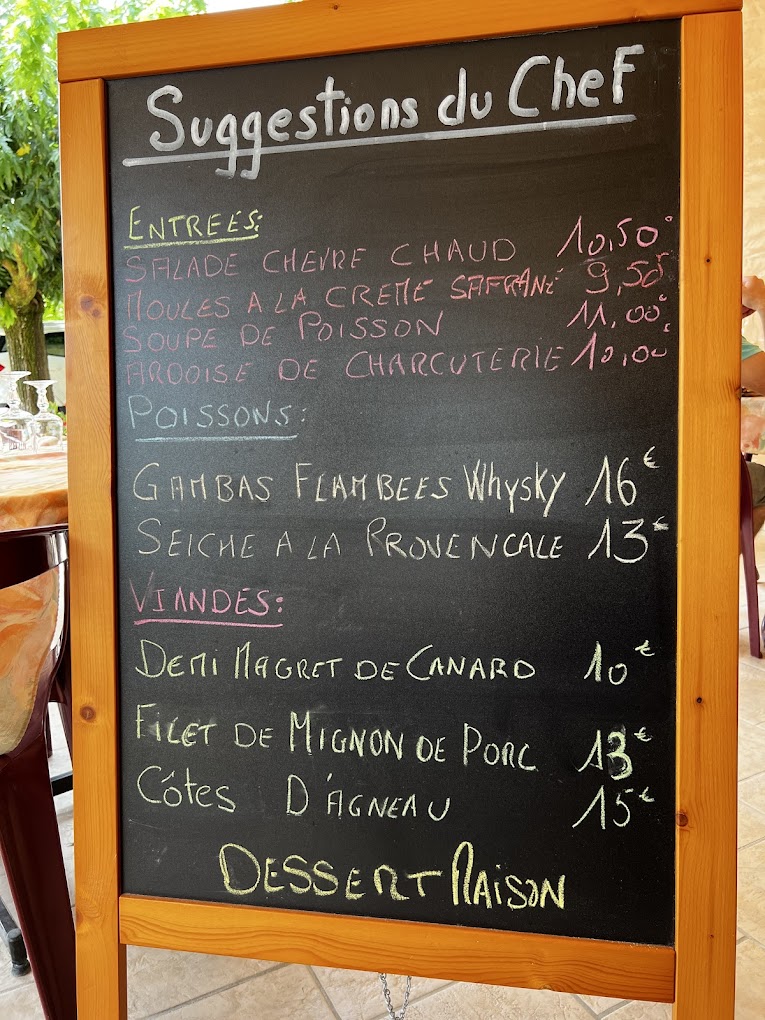 Suggestions du Chef
ENTREES:
SALADE CHEVRE CHAUD 10,50€
MOULES A LA CREME SAFRANÉ 9,50€
SOUPE DE POISSON 11,00€
ARDOISE DE CHARCUTERIE 10,00
POISSONS:
GAMBAS FLAMBEES WHYSKY 16€
SEICHE A LA PROVENCALE 13€
VIANDES:
DEMI MAGRET DE CANARD 10€
FILET DE MIGNON DE PORC 13€
CÔTES D'AGNEAU 15€
DESSERT MAISON